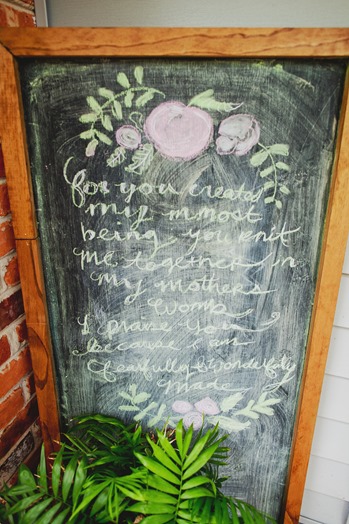 for you created
my inmost
being you knit
me together in
my mothers
womb
I praise you
because I am
fearfully & wonderfully
made